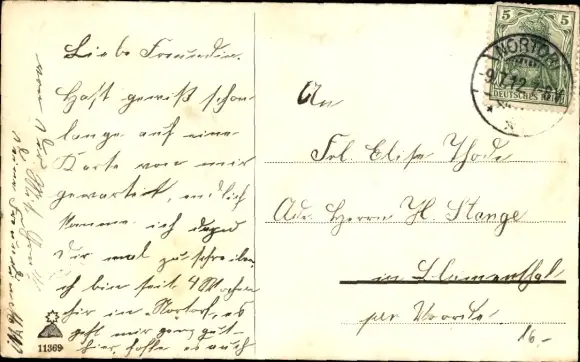 Liebe Freundin.
Hast gewiß schon
lange auf eine
Karte von mir
gewartet, endlich
komme ich dazu
Dir mal zu schreiben,
ich bin seit 4 Wochen
hier in Nortorf, es
geht mir ganz gut
hier, hoffe es auch
von Dir
An
Frl. Elise Thode
Adr. Herrn H. Stange
in Blumenthal
per Voorde
5 5
NORTORF
-9.7.12.
DEUTSCHES REICH
11369
16.-